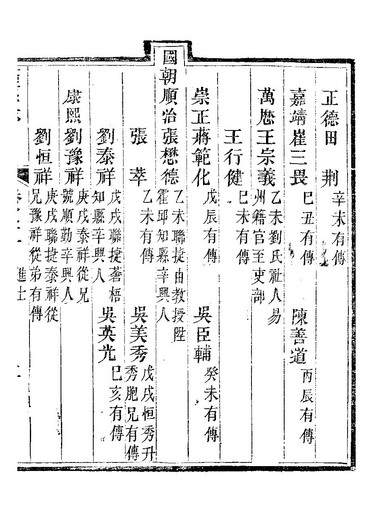 正德田　荆辛未有傳
嘉靖崔三畏己丑有傳　陳善道丙辰有傳
萬厯王宗義乙未劉氏社人易
州籍官至吏部
王行健己未有傳
崇正蔣範化戊辰有傳　吳臣輔癸未有傳
國朝順治張懋德乙未聯捷由教授陞
霍邱知縣辛興人
張　萃乙未有傳　吳美秀戊戌恒秀升
秀胞兄有傳
劉泰祥戊戌聯捷蒼梧
知縣辛興人　吳英光己亥有傳
康熙劉豫祥庚戌泰祥從兄
號順勤辛興人
劉恒祥庚戌聯捷泰祥從
兄豫祥從弟有傳
進士